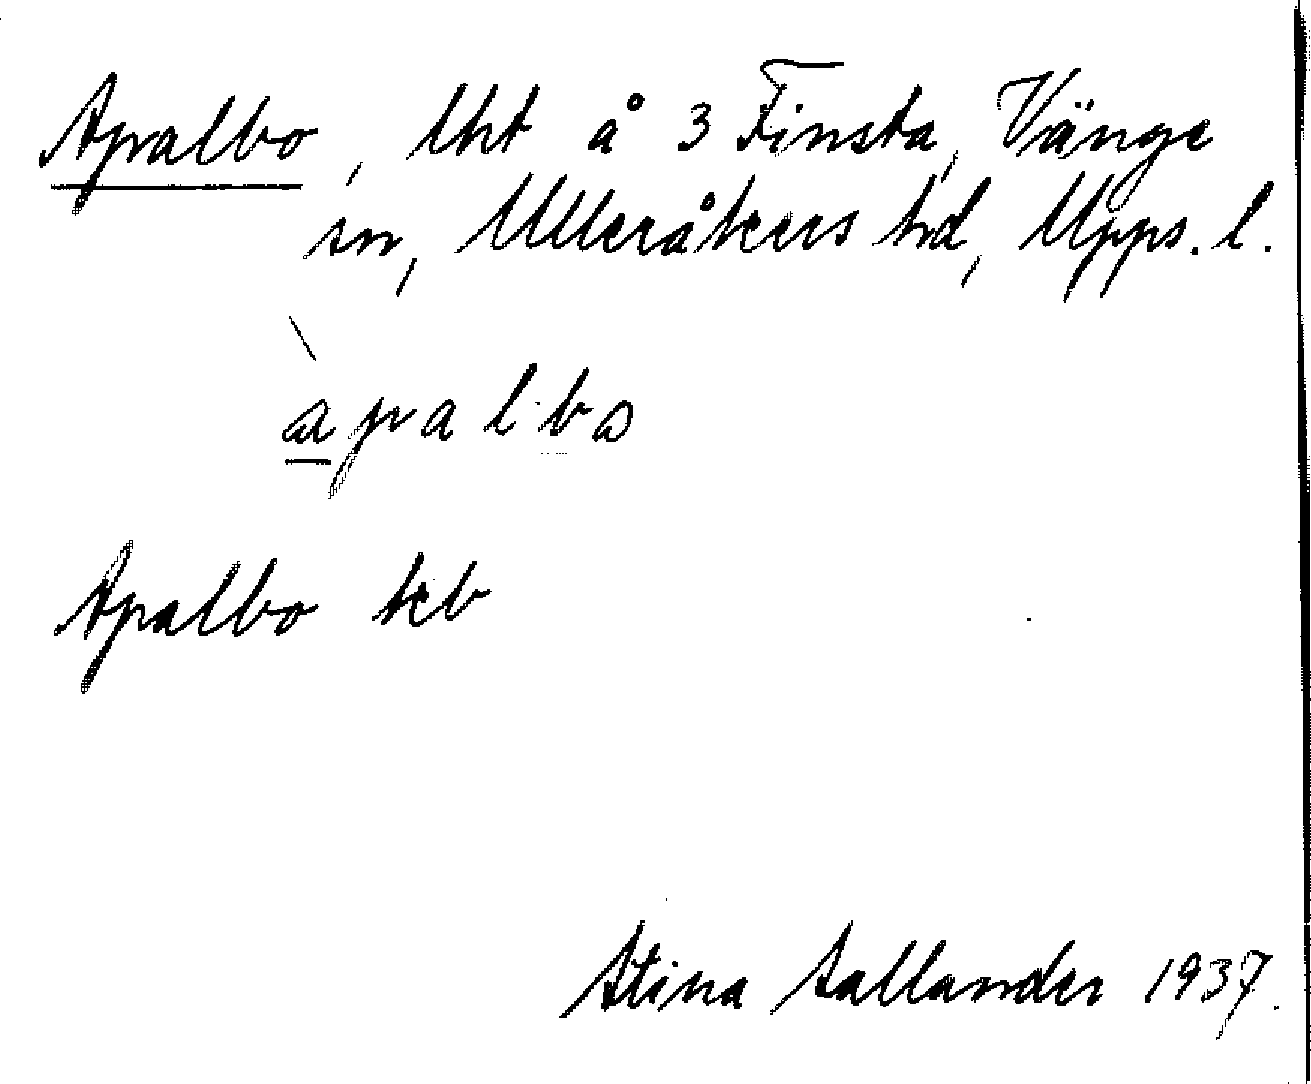 Apalbo, lht å 3 Finsta, Vänge
sn, Ulleråkers hd, Upps. l.
àpalbo
Apalbo keb
Stina Sallander 1937.